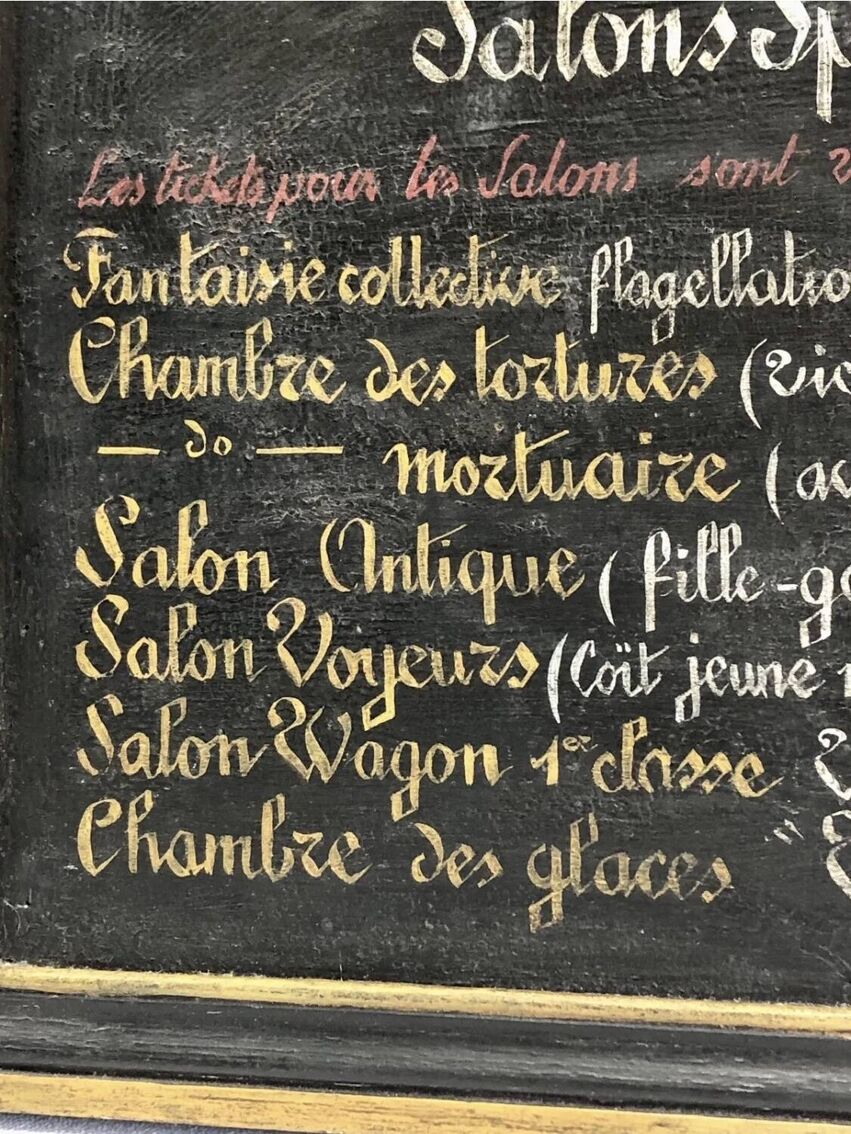 Salons
Les tickets pour les Salons sont
Fantaisie collective
Chambre des tortures
— do — mortuaire
Salon Antique (fille-
Salon Voyeurs (Coït jeune
Salon Wagon 1er classe
Chambre des glaces "